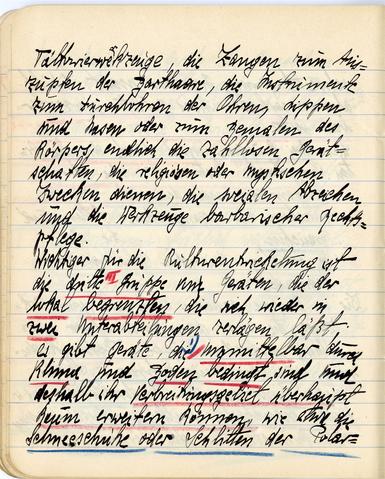 Tätowierwerkzeuge, die Zangen zum Aus-
zupfen der Barthaare, die Instrumente
zum Durchbohren der Ohren, Lippen
und Nasen oder zum Bemalen des
Körpers, endlich die zahllosen Gerät-
schaften, die religiösen oder mystischen
Zwecken dienen, die sozialen Abzeichen
und die Werkzeuge barbarischer Rechts-
pflege.
Wichtiger für die Kulturentwickelung ist
die dritte III Gruppe von Geräten, die der
lokal begrenzten, die sich wieder in
zwei Unterabteilungen zerlegen läßt.
es gibt Geräte, die 1) unmittelbar durch
Klima und Boden bedingt sind und
deshalb ihr Verbreitungsgebiet überhaupt
kaum erweitern können, wie etwa die
Schneeschuhe oder Schlitten der Polar-